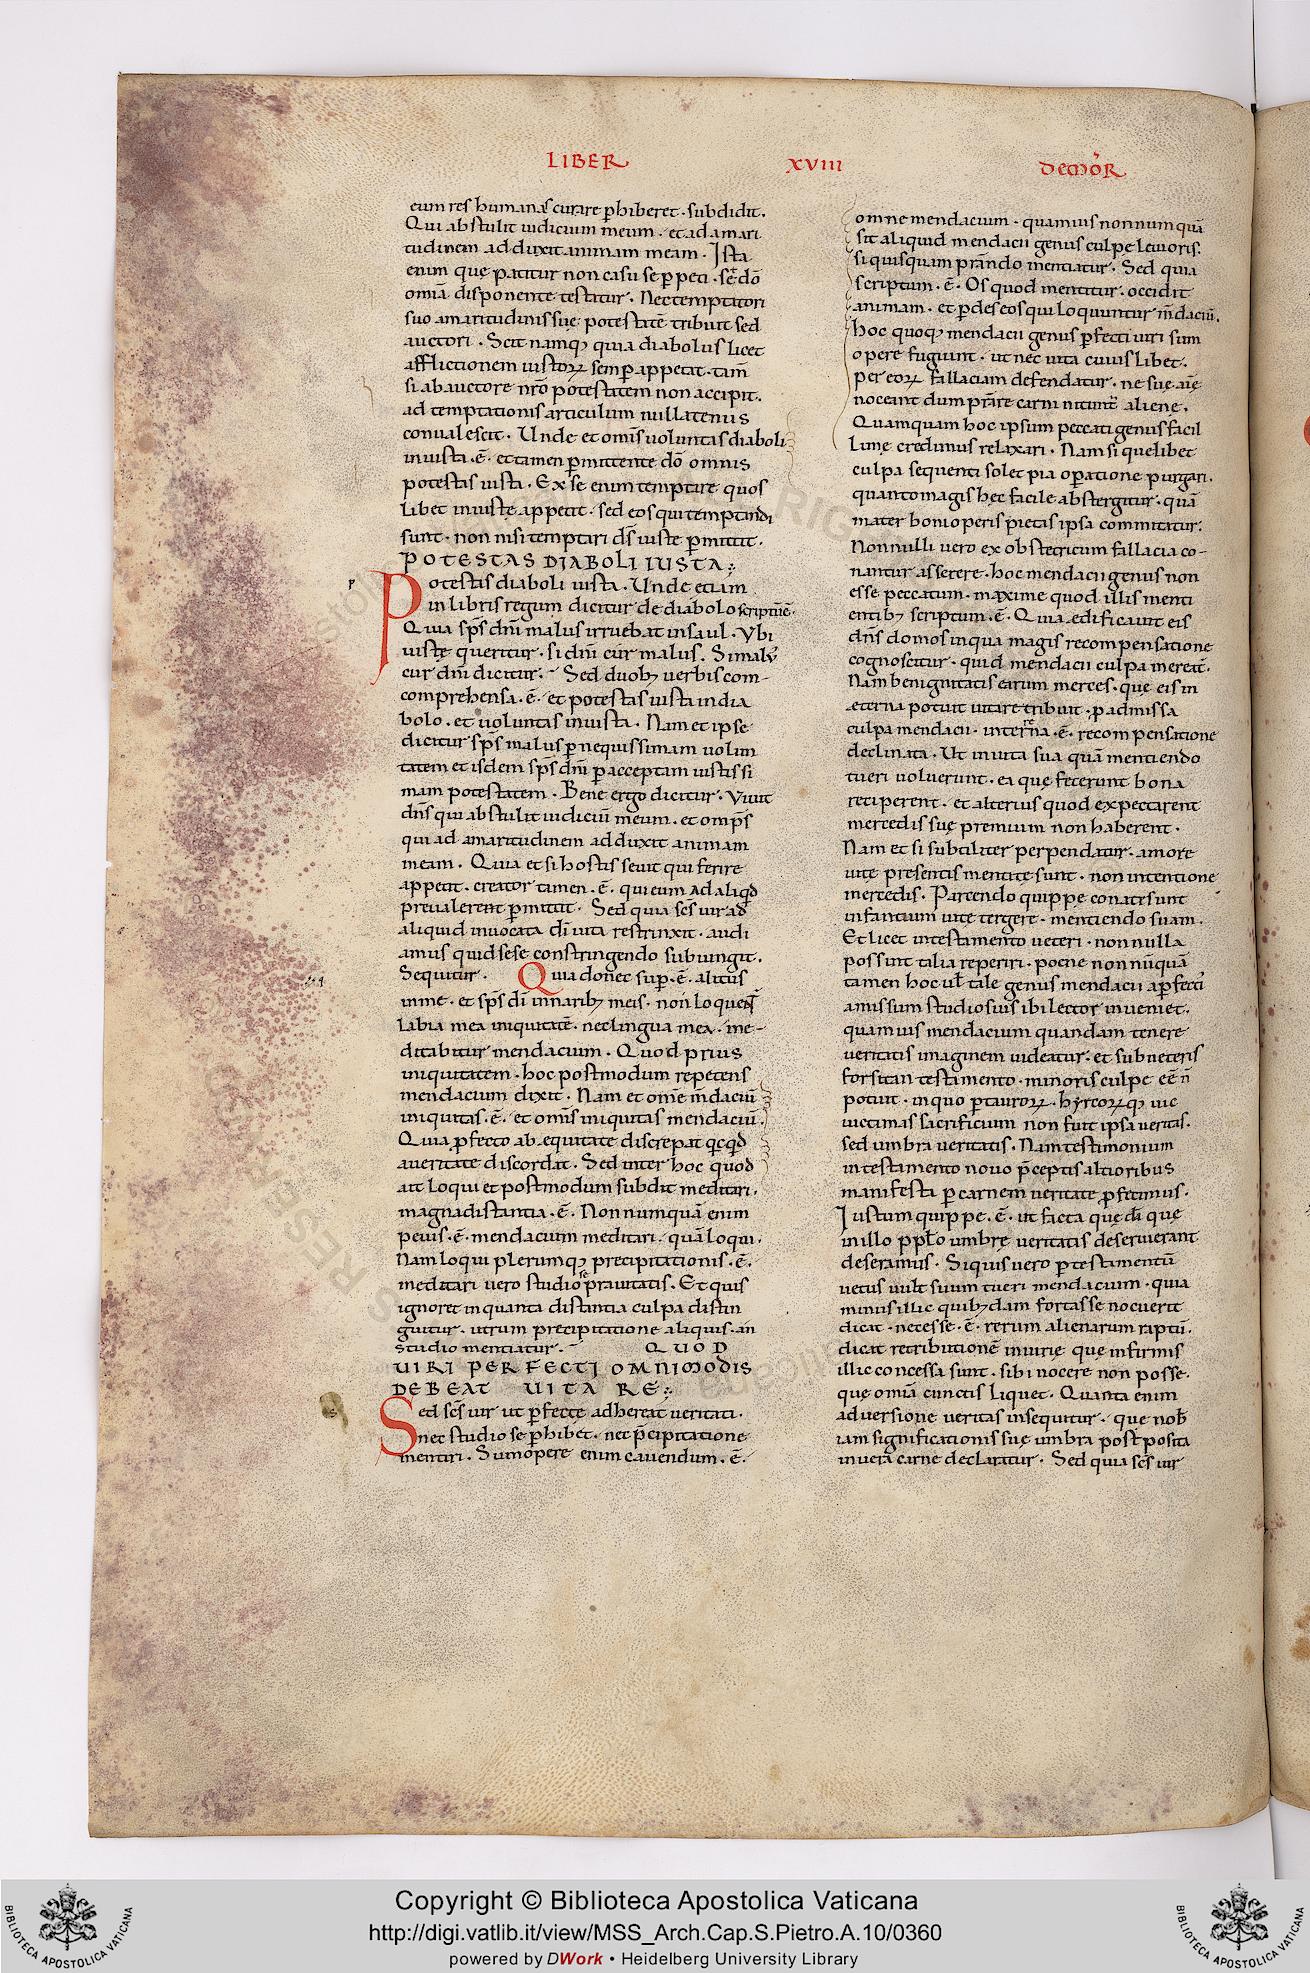 LIBER XVIII DEMOR̃
eum res humanas curare p̱hiberet · subdidit.
Qui abstulit iudicium meum · et ad amari
tudinem adduxit animam meam. Ista
enim quę patitur non casu se ꝑpeti · s; dō
omīa disponente testatur. Nec temptatori
suo amaritudinis suę potestatē tribuit sed
auctori. Scit namq; quia diabolus licet
afflictionem iustoꝝ semꝑ appetat · tam̄
si ab auctore nr̄o potestatem non accipit.
ad temptationis articulum nullatenus
conualescit. Unde et om̄is uoluntas diaboli
iniusta · ē · et tamen ꝑmittente dō omnis
potestas iusta. Ex se enim temptare quos
libet iniuste appetit · sed eos qui temptandi
sunt · non nisi temptari dſ̄ iuste ꝑmittit.
POTESTAS DIABOLI IUSTA:
Potestas diaboli iusta. Unde etiam
in libris regum dicitur de diabolo scriptū ē.
Quia sp̄s dn̄i malus irruebat in saul. Ubi
iuste queritur · si dn̄i cur malus. Si malꝰ
cur dn̄i dicitur. Sed duob; uerbis com-
comprehensa · ē · et potestas iusta in dia
bolo · et uoluntas iniusta. Nam et ipse
dicitur sp̄s malus ꝑ nequissimam uolun
tatem et isdem sp̄s dn̄i ꝑ acceptam iustissi
mam potestatem. Bene ergo dicitur. Viuit
dn̄s qui abstulit iudiciū meum · et omp̄s
qui ad amaritudinem adduxit animam
meam. Quia et si hostis seuit qui ferire
appetit · creator tamen · ē · qui eum ad aliqd̄
preualerent ꝑmittit. Sed quia sc̄s uir ad
aliquid inuocata dī uita restrinxit · audi
amus quid sese constringendo subiungit.
Sequitur. Quia donec suꝑ · ē · alitus
in me · et sp̄s dī in narib; meis · non loquent̄
labia mea iniquitatē · nec lingua mea · me-
ditabitur mendacium. Quod prius
iniquitatem · hoc postmodum repetens
mendacium dixit. Nam et om̄e m̄daciū
iniquitas · ē · et om̄is iniquitas mendaciū.
Quia ꝑfecto ab equitate discrepat qcqd̄
a ueritate discordat. Sed inter hoc quod
ait loqui et postmodum subdit meditari.
magna distantia · ē. Non numquā enim
peius · ē · mendacium meditari · quā loqui.
Nam loqui plerumq; precipitationis · ē ·
meditari uero studiosę prauitatis. Et quis
ignoret in quanta distantia culpa distin
guitur · utrum precipitatione aliquis · an
studio mentiatur. QUOD
UIRI PERFECTI OMNIMODIS
DEBEAT UITARE:
Sed sc̄s uir ut ꝑfecte adhereat ueritati.
nec studio se p̱hibet · nec p̄cipitatione
mentiri. Sumopere enim cauendum · ē ·
omne mendacium · quamuis nonnumquā
sit aliquid mendacii genus culpe leuioris.
si quisquam prāndo mentiatur. Sed quia
scriptum · ē · Os quod mentitur · occidit
animam · et ꝑdes eos qui loquuntur m̄daciū.
hoc quoq; mendacii genus ꝑfecti uiri sum
opere fugiunt · ut nec uita cuius libet.
per eoꝝ fallaciam defendatur · ne suę aīę
noceant dum prāre carni nitunt̄ alienę.
Quamquam hoc ipsum peccati genus facil
lime credimus relaxari. Nam si quelibet
culpa sequenti solet pia oꝑatione purgari.
quanto magis hęc facile abstergitur · quā
mater boni operis pietas ipsa commitatur.
Nonnulli uero ex obstetricum fallacia co-
nantur asserere · hoc mendacii genus non
esse peccatum · maxime quod illis menti
entib; scriptum · ē · Quia edificauit eis
dn̄s domos in qua magis recompensatione
cognoscitur · quid mendacii culpa mereat̄.
Nam benignitatis earum merces · quę eis in
ęterna potuit uitare tribuit · p admissa
culpa mendacii · in terrena · ē · recompensatione
declinata. Ut in uita sua quā mentiendo
tueri uoluerunt · ea quę fecerunt bona
reciperent · et alterius quod expectarent
mercedis suę premium non haberent.
Nam et si subtiliter perpendatur · amore
uitę presentis mentitę sunt · non intentione
mercedis. Parcendo quippę conatę sunt
infantium uitę tergere · mentiendo suam.
Et licet in testamento ueteri · nonnulla
possint talia reperiri · poene non nūquā
tamen hoc ul̄ tale genus mendacii a ꝑfecti
amissum studiosius ibi lector inueniet.
quamuis mendacium quandam tenere
ueritatis imaginem uideatur · et sub ueteris
forsitan testamento · minoris culpe eē n̄
potuit · in quo ꝑ tauroꝝ · hyrcoꝝq; uic
uictimas sacrificium non fuit ipsa ueritas.
sed umbra ueritatis. Nam testimonium
in testamento nouo p̄ceptis altioribus
manifesti ꝑ carnem ueritate ꝑfecimus.
Iustum quippe · ē · ut facta quędā quę
in illo ppl̄o umbrę ueritatis deseruierant
deseramus. Si quis uero ꝑ testamentū
uetus uult suum tueri mendacium · quia
minus illic quib;dam fortasse nocuerit
dicat · necesse · ē · rerum alienarum raptū.
dicat retributionē iniurię quę infirmis
illic concessa sunt · sibi nocere non posse.
quę omīa cunctis liquet. Quanta enim
aduersione ueritas insequitur · quę nob̄
iam significationis suę umbra postposita
in uera carne declaratur. Sed quia sc̄s uir
Copyright © Biblioteca Apostolica Vaticana
http://digi.vatlib.it/view/MSS_Arch.Cap.S.Pietro.A.10/0360
powered by DWork • Heidelberg University Library
BIBLIOTECA APOSTOLICA VATICANA
BIBLIOTECA APOSTOLICA VATICANA